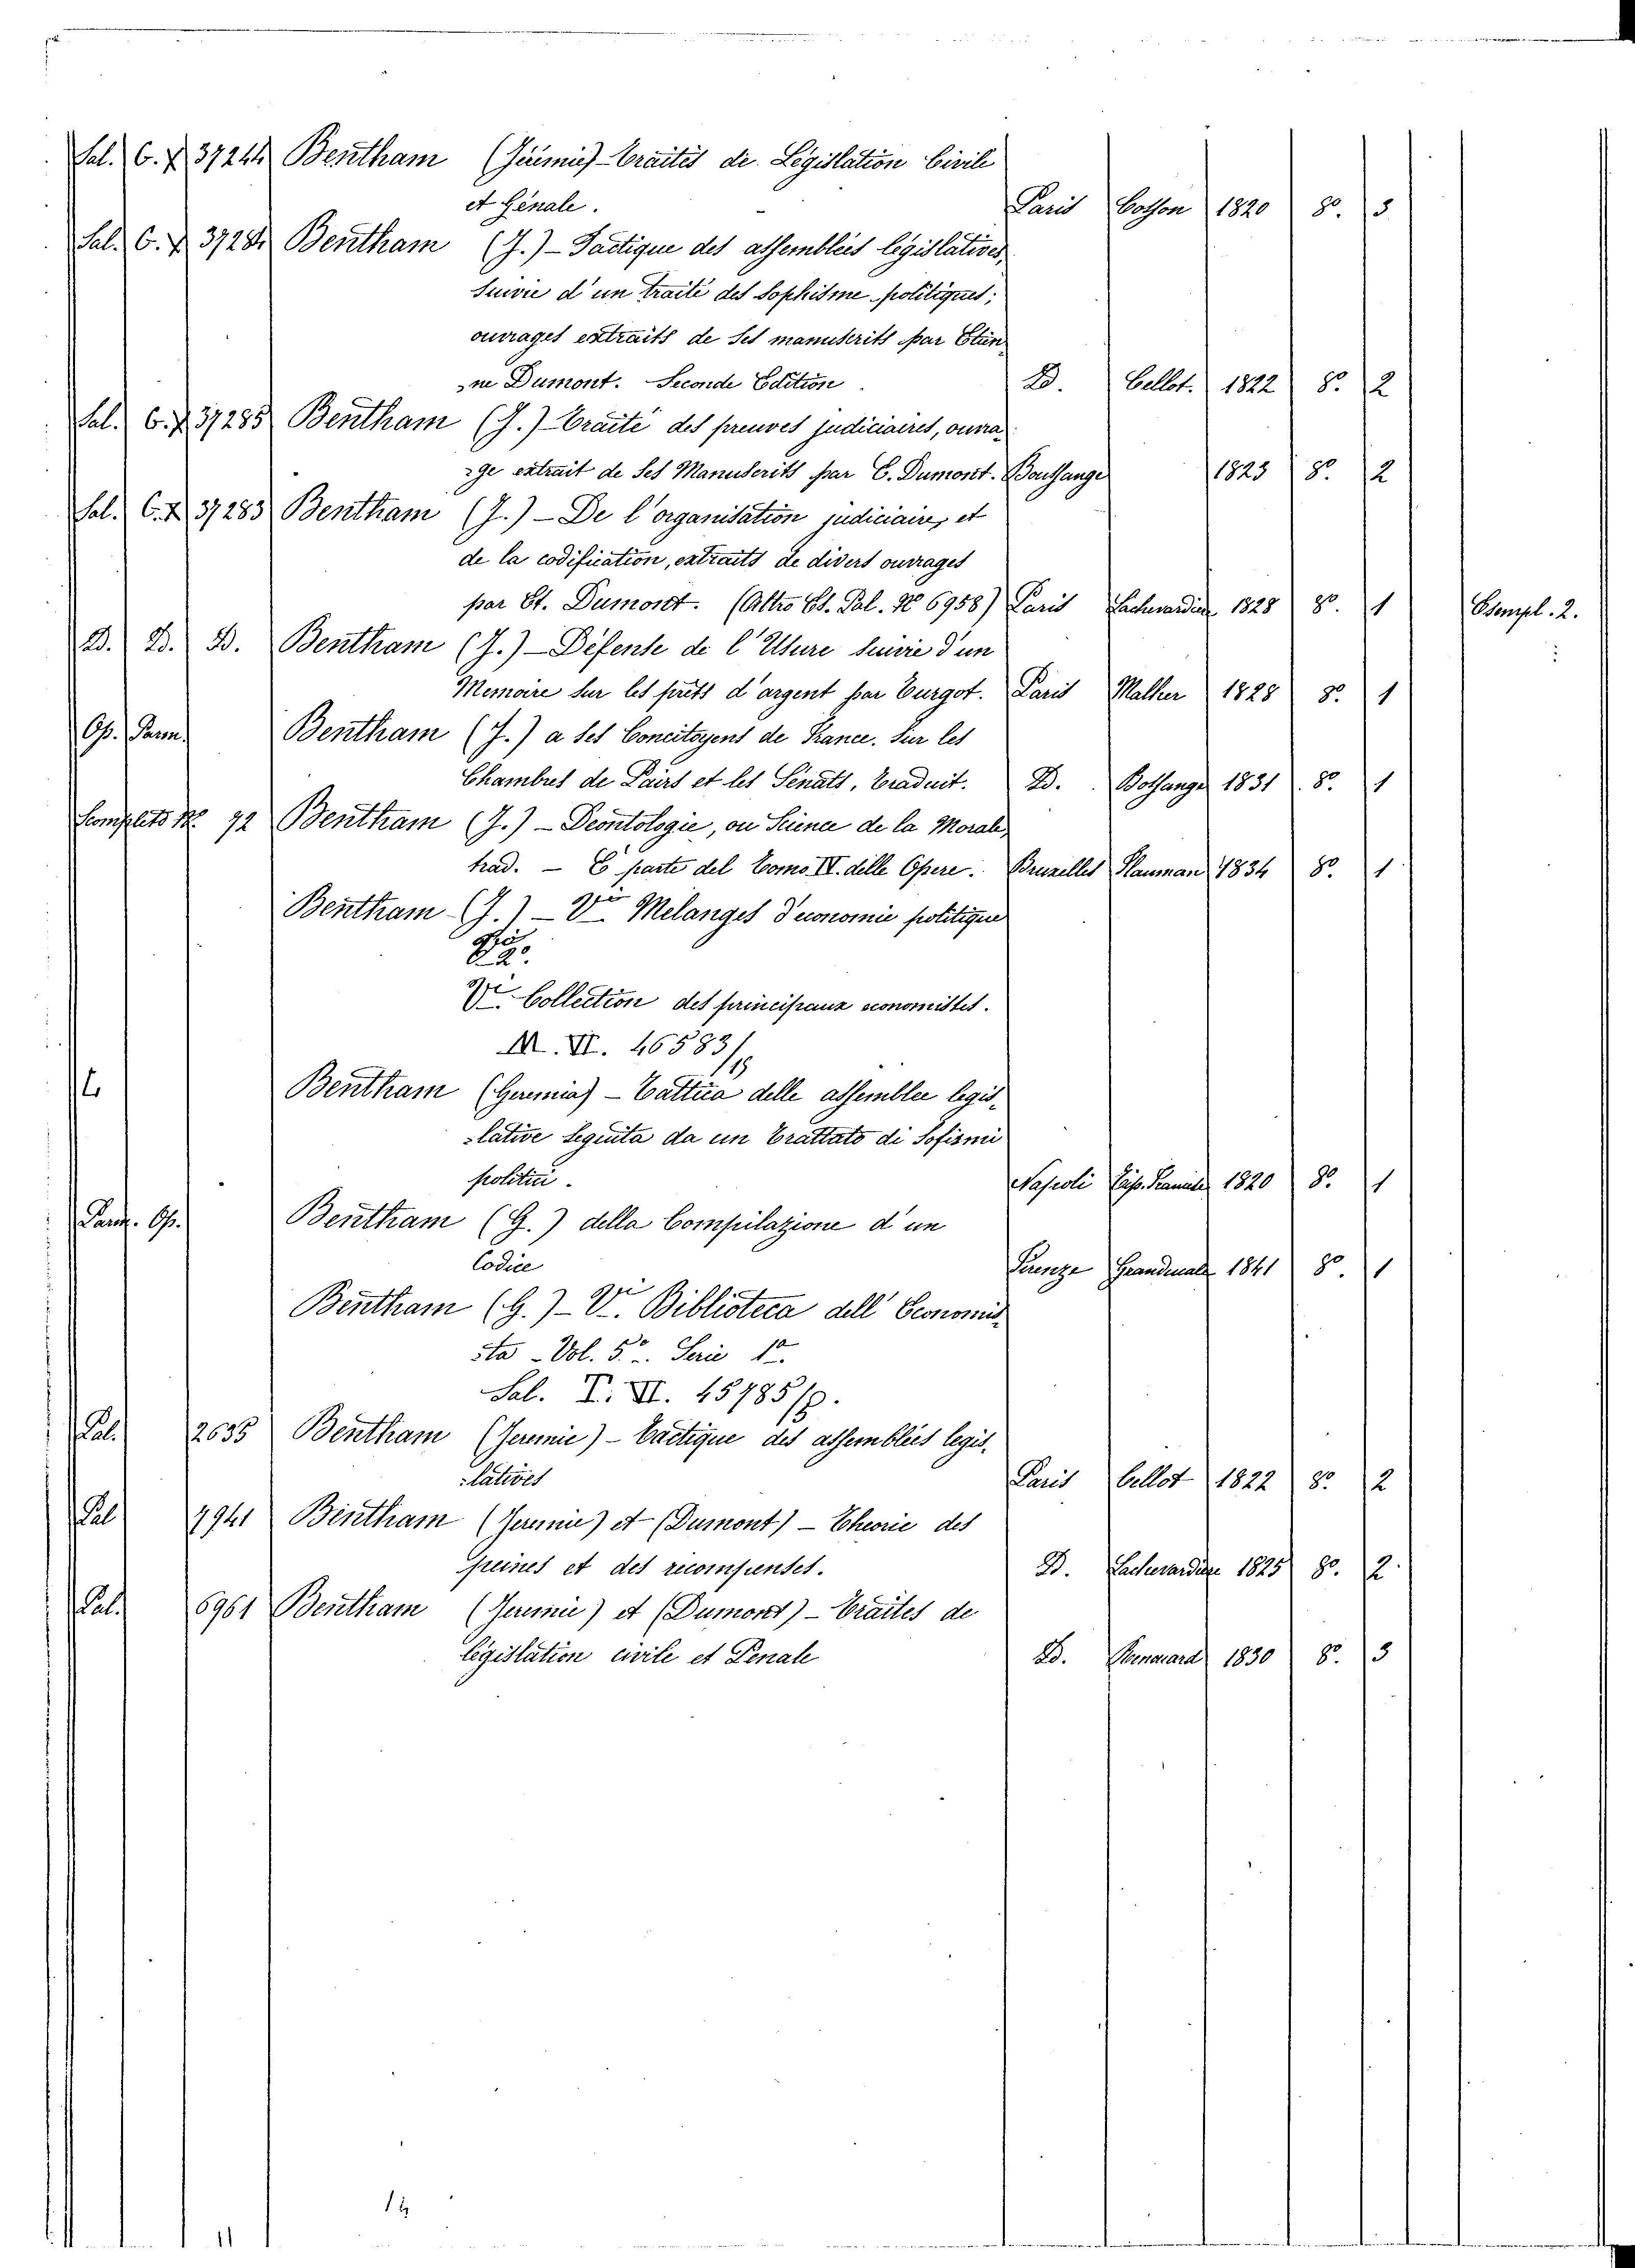 Sal. C. X 37244 Bentham (Jéremie) - Traités de Législation Civile
et Pénale. Paris Bosson 1820 8º. 3
Sal. C. X 37284 Bentham (J.) - Tactique des assemblées législatives,
suivie d'un traité des Sophisme politiques;
ouvrages extraits de ses manuscrits par Etien
ne Dumont. Seconde Edition. D. Cellot. 1822 8º. 2
Sal. C. X 37285 Bentham (J.) - Traité des preuves judiciaires, ouvra
ge extrait de ses Manuscrits par E. Dumont. Boussange 1823 8º. 2
Sal. C. X 37283 Bentham (J.) - De l'organisation judiciaire, et
de la codification, extraits de divers ouvrages
par Et. Dumont. (Altro Es. Pal. Nº 6958) Paris Lachevardiere 1828 8º. 1 Esempl. 2.
D. D. D. Bentham (J.) - Défense de l'Usure suivie d'un
Memoire sur les prêts d'argent par Turgot. Paris Malher 1828 8º. 1
Op. Parm. Bentham (J.) a ses Concitoyens de France. Sur les
Chambres de Pairs et les Sénats, Traduit. D. Bossange 1831 8º. 1
Scomplets Nº 92 Bentham (J.) - Deontologie, ou Science de la Morale,
trad. - E' parte del Tomo IV. delle Opere. Bruxelles Hauman 1834 8º. 1
Bentham (J.) - Vi Melanges d'economie politique
Vi Collection des principaux economistes.
M. VI. 46583/15
Bentham (Geremia) - Tattica delle assemblee legis
lative seguita da un Trattato di Sofismi
politici. Napoli 1820 8º. 1
Parm. Op. Bentham (G.) della Compilazione d'un
Codice Firenze 1841 8º. 1
Bentham (G.) - Vi. Biblioteca dell' Economis
ta - Vol. 5º. Serie 1ª.
Sal. T. VI. 45785/5.
Pal. 2635 Bentham (Jeremie) - Tactique des assemblées legis
latives Paris Cellot 1822 8º. 2
Pal 7941 Bentham (Jeremie) et (Dumont) - Theorie des
peines et des recompenses. D. Lachevardiere 1825 8º. 2
Pal. 6961 Bentham (Jeremie) et (Dumont) - Traites de
législation civile et Penale D. 1830 8º. 3